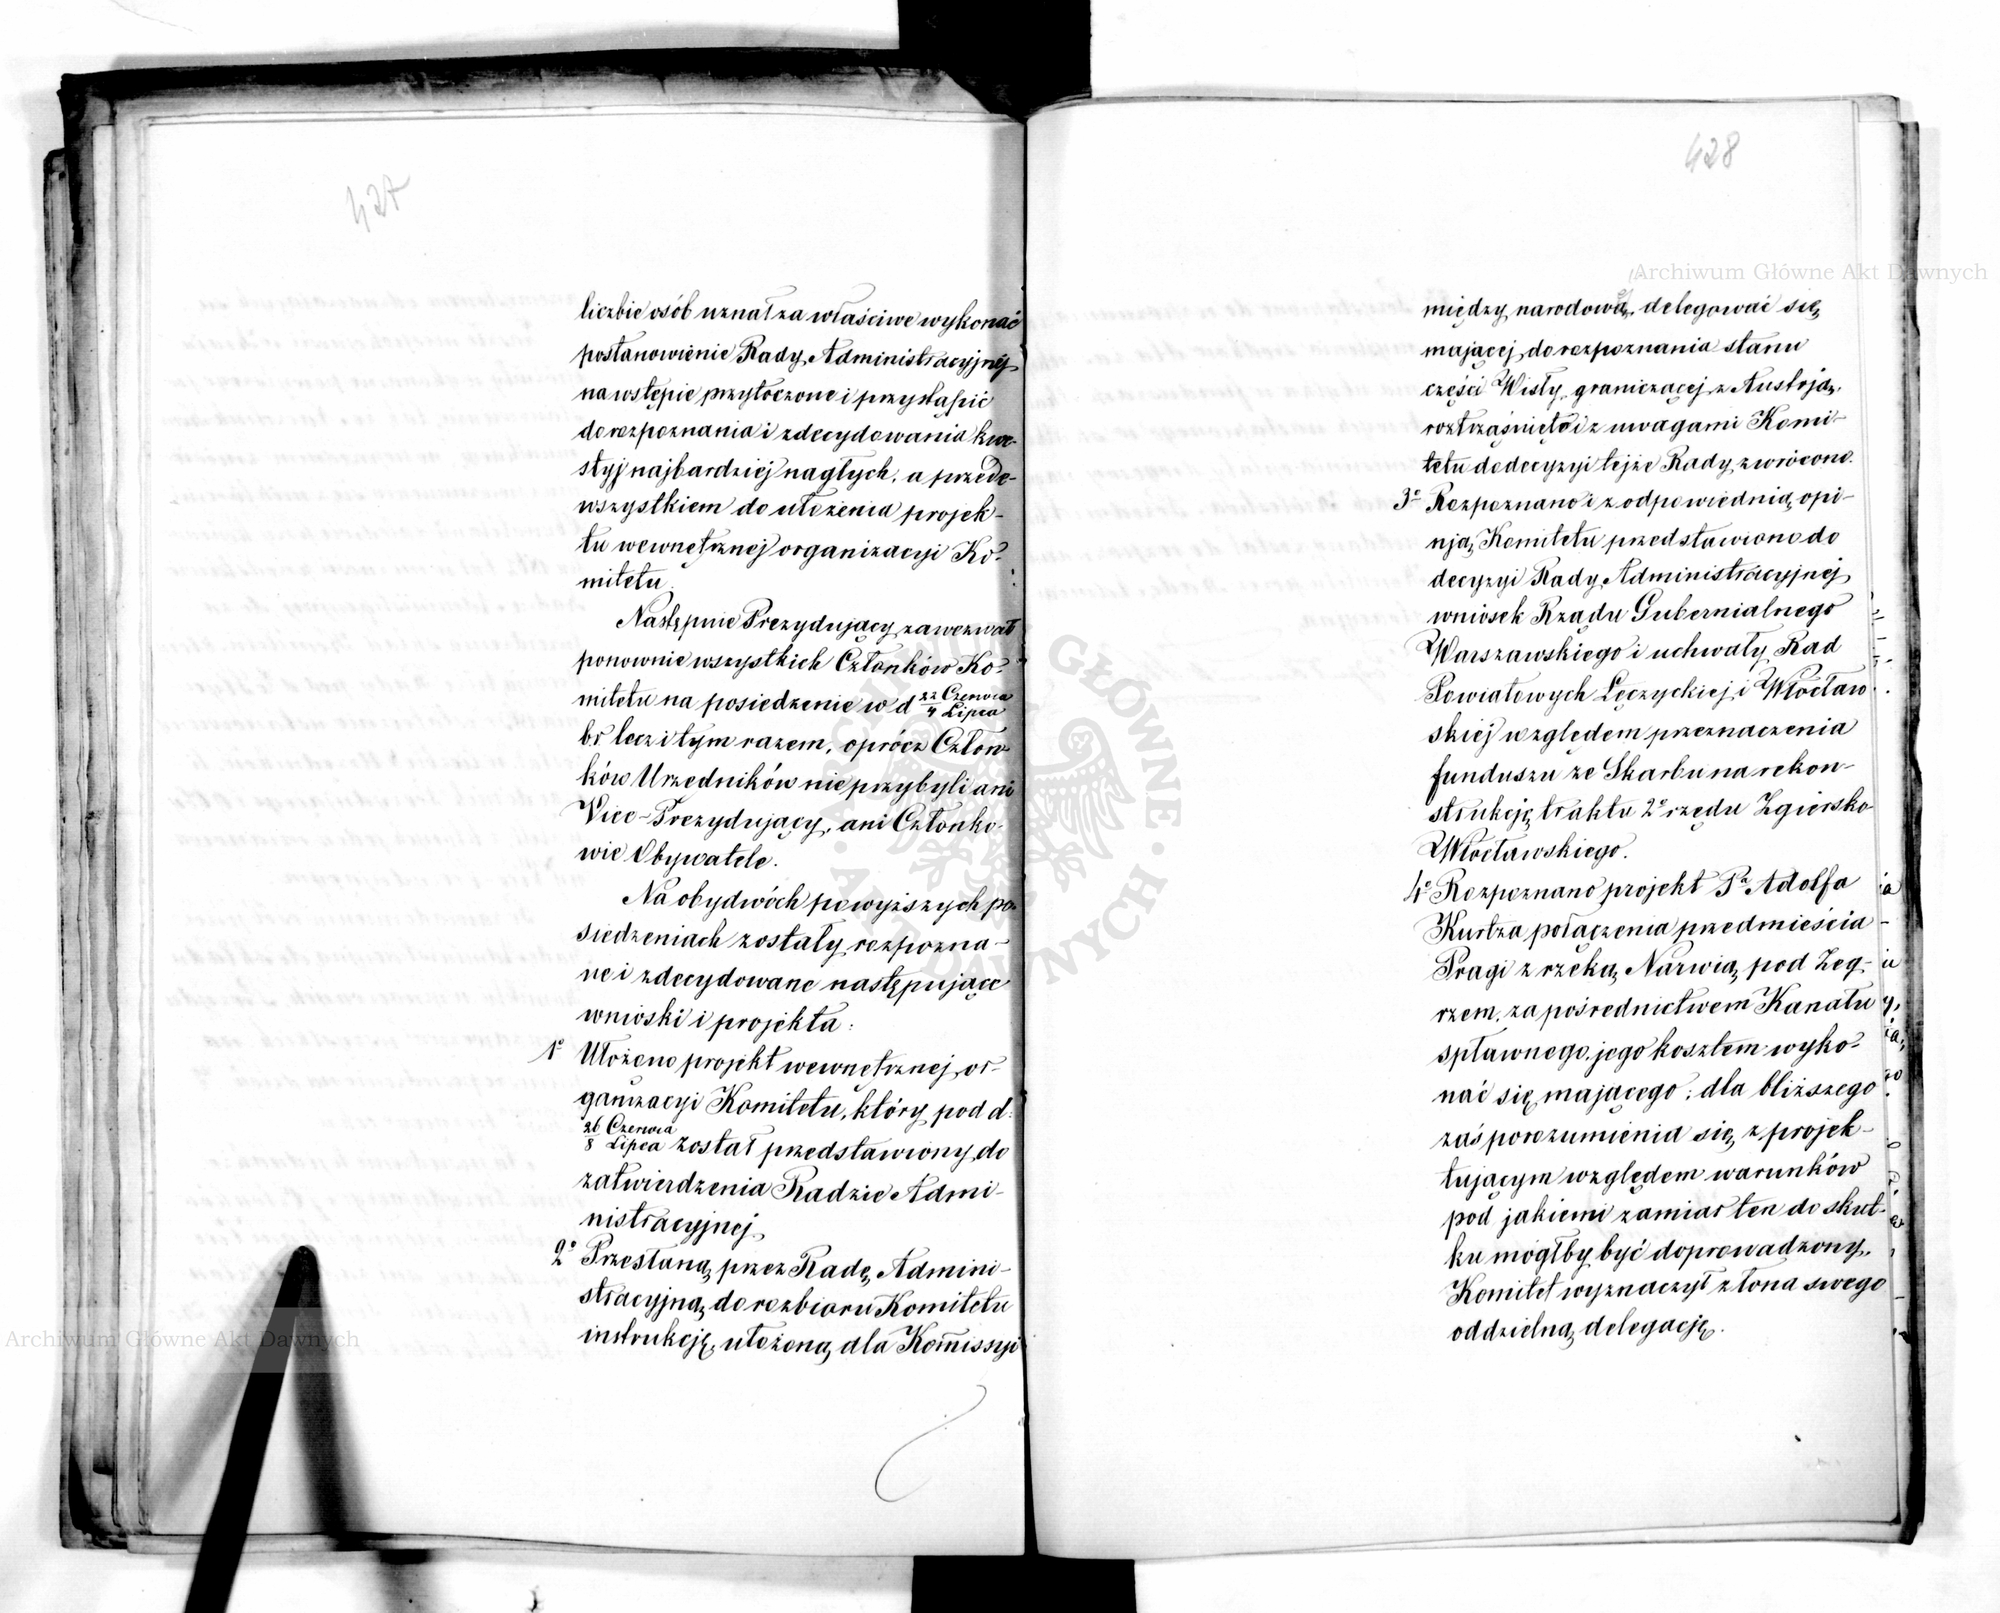 427
liczbie osób uznał za właściwe wykonać
postanowienie Rady Administracyjnéj
na wstępie przytoczone i przystąpić
do rozpoznania i zdecydowania kwe-
styj najbardziéj nagłych, a przede-
wszystkiem do ułożenia projek-
tu wewnętrznéj organizacyi Ko-
mitetu.
Następnie Prezydujący zawezwał
ponownie wszystkich Członków Ko-
mitetu na posiedzenie w d 22 Czerwca / 4 Lipca
b.r. lecz i tym razem, oprócz Człon-
ków Urzędników nie przybyli ani
Vice-Prezydujący, ani Członko-
wie Obywatele.
Na obydwóch powyższych po-
siedzeniach zostały rozpozna-
ne i zdecydowane następujące
wnioski i projekta:
1º Ułożono projekt wewnętrznej or-
ganizacyi Komitetu, który pod d.
26 Czerwca / 8 Lipca został przedstawiony do
zatwierdzenia Radzie Admi-
nistracyjnej.
2º Przesłaną przez Radę Admini-
stracyjną do rozbioru Komitetu
instrukcję, ułożoną dla Komissyi
428
między narodową, delegować się
mającej do rozpoznania stanu
części Wisły graniczącej z Austrją,
roztrząśnięto i z uwagami Komi-
tetu do decyzyi tejże Rady zwrócono.
3º Rozpoznano i z odpowiednią opi-
nją Komitetu przedstawiono do
decyzyi Rady Administracyjnéj
wniosek Rządu Gubernialnego
Warszawskiego i uchwały Rad
Powiatowych Łęczyckiej i Włocław
skiéj względem przeznaczenia
funduszu ze Skarbu na rekon-
strukcję traktu 2º rzędu Zgiersko-
Włocławskiego.
4º Rozpoznano projekt Pª Adolfa
Kurtza połączenia przedmieścia
Pragi z rzeką Narwią pod Zeg-
rzem, za pośrednictwem Kanału
spławnego, jego kosztem wyko-
nać się mającego; dla bliższego
zaś porozumienia się z projek-
tującym względem warunków
pod jakiemi zamiar ten do skut-
ku mógłby być doprowadzony,
Komitet wyznaczył z łona swego
oddzielną delegację.
Archiwum Główne Akt Dawnych
Archiwum Główne Akt Dawnych
ARCHIWUM GŁÓWNE · AKT DAWNYCH ·